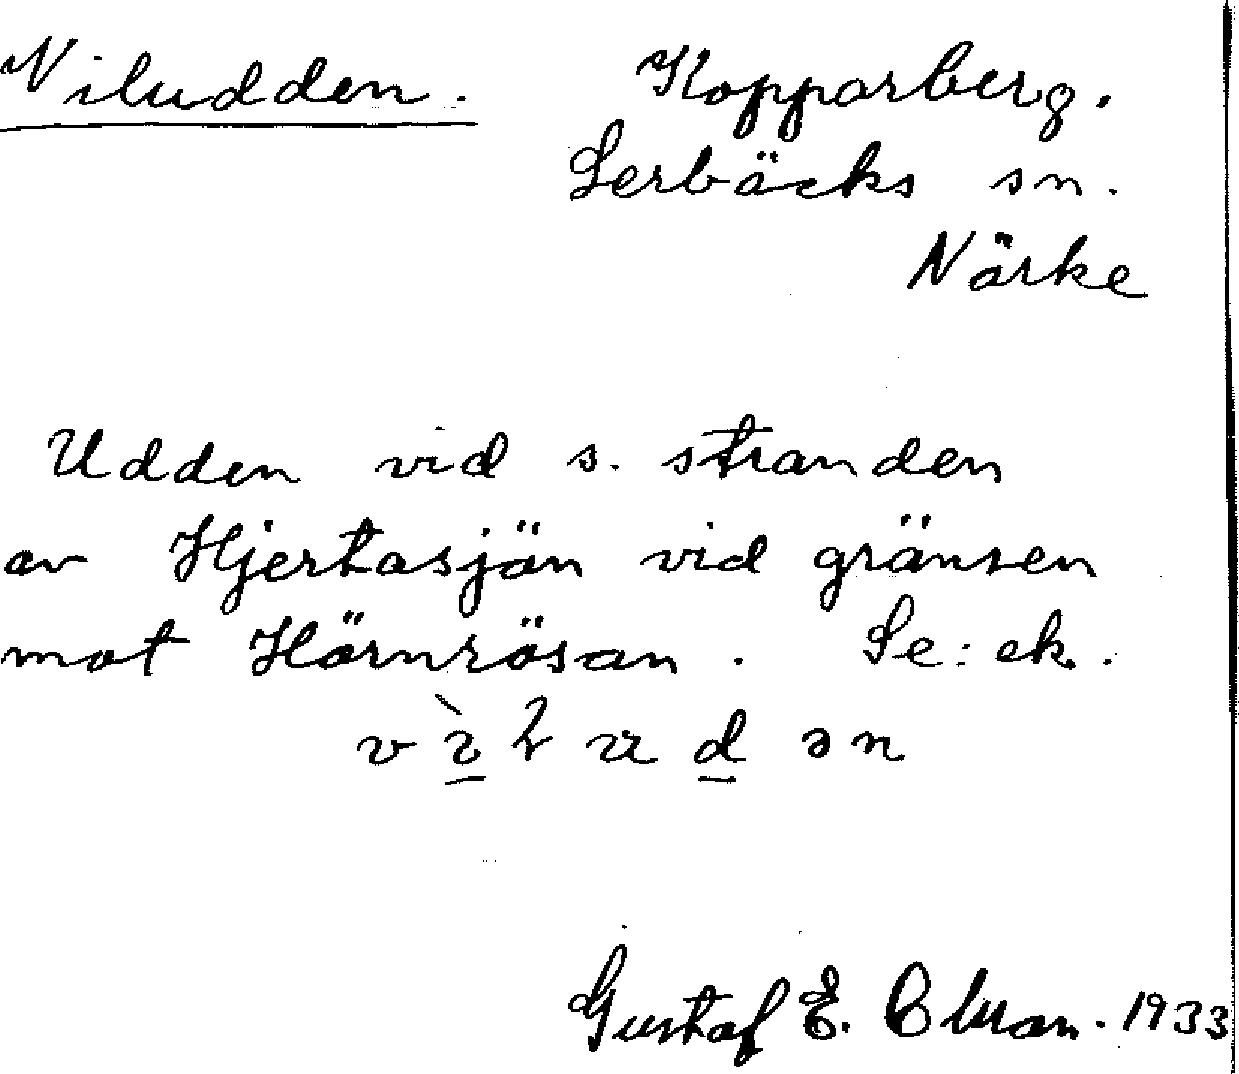 Viludden. Kopparberg.
Lerbäcks sn.
Närke
Udden vid s. stranden
av Hjertasjön vid gränsen
mot Hörnrösan. Se: ek.
Gustaf E. 1933